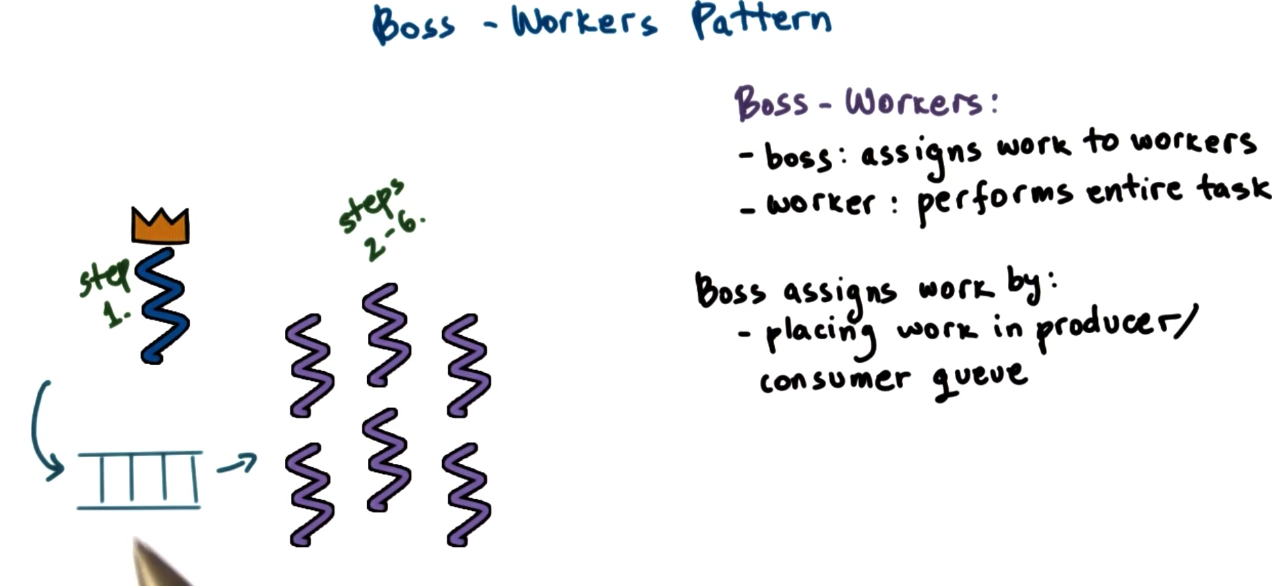 Boss - Workers Pattern
Boss - Workers:
- boss: assigns work to workers
- worker: performs entire task
steps
2-6.
step
1.
Boss assigns work by:
- placing work in producer/
consumer queue